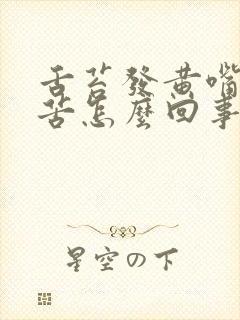 舌苔發黃嘴
苦怎麼回事
星空の下